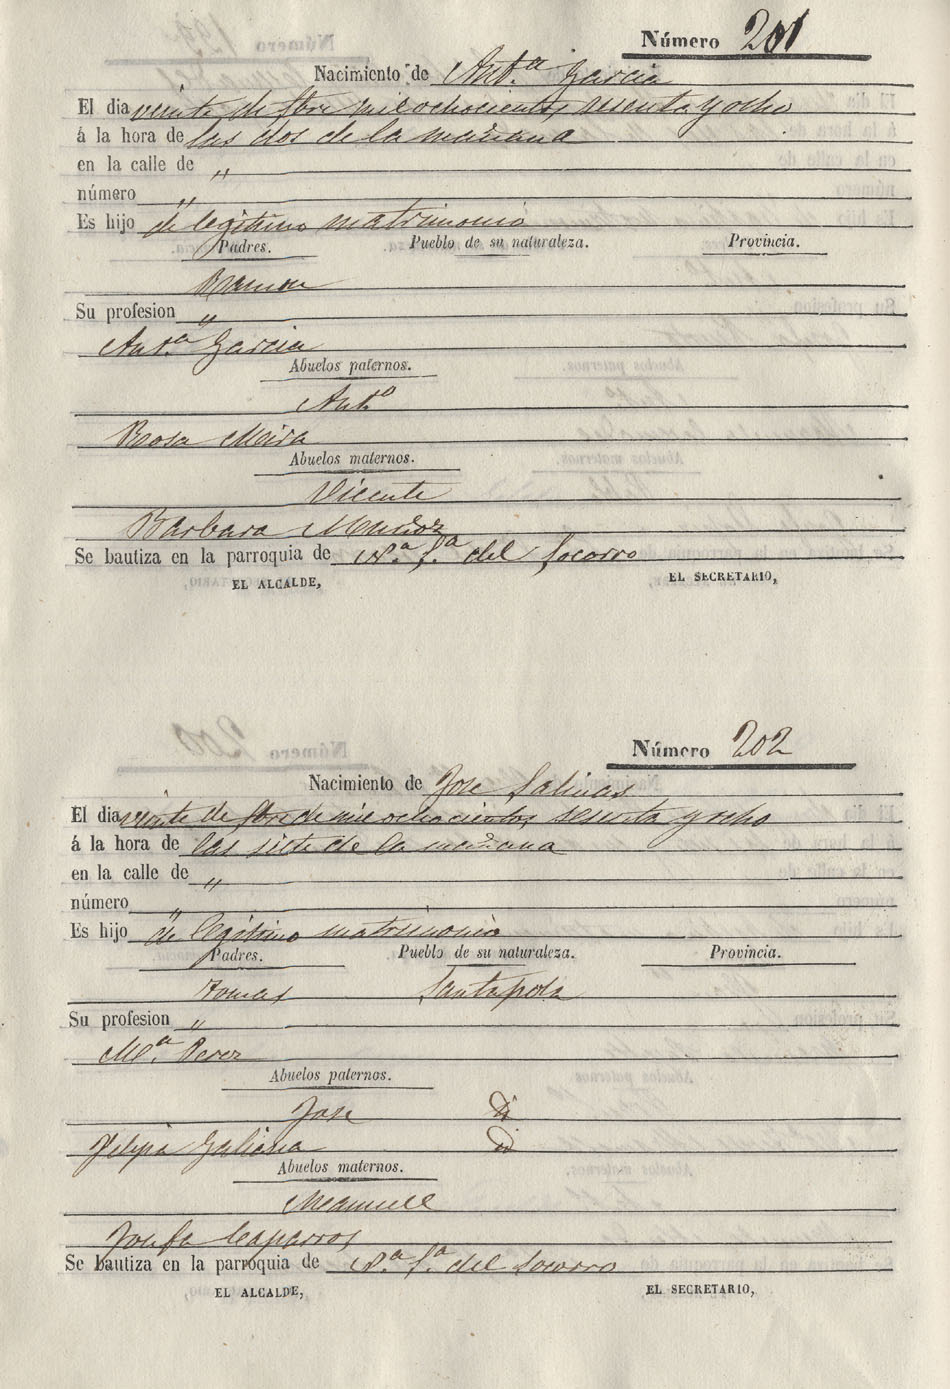 Número 201
Nacimiento de Ant.ª Garcia
El dia veinte de fbre mil ochocientos sesenta y ocho
á la hora de las dos de la mañana
en la calle de „
número „
Es hijo de legitimo matrimonio
Padres. Pueblo de su naturaleza. Provincia.
Ramon
Su profesion „
Ant.ª Garcia
Abuelos paternos.
Ant.º
Rosa Maira
Abuelos maternos.
Vicente
Barbara Muñoz
Se bautiza en la parroquia de N.ª S.ª del Socorro
EL ALCALDE, EL SECRETARIO,
Número 202
Nacimiento de Jose Salinas
El dia veinte de fbre de mil ochocientos sesenta y ocho
á la hora de las siete de la mañana
en la calle de „
número „
Es hijo de legitimo matrimonio
Padres. Pueblo de su naturaleza. Provincia.
Tomas Santapola
Su profesion „
M.ª Perez
Abuelos paternos.
Jose
Felipa Galiana id
Abuelos maternos.
Manuell
Josefa Caparros
Se bautiza en la parroquia de N.ª S.ª del Socorro
EL ALCALDE, EL SECRETARIO,